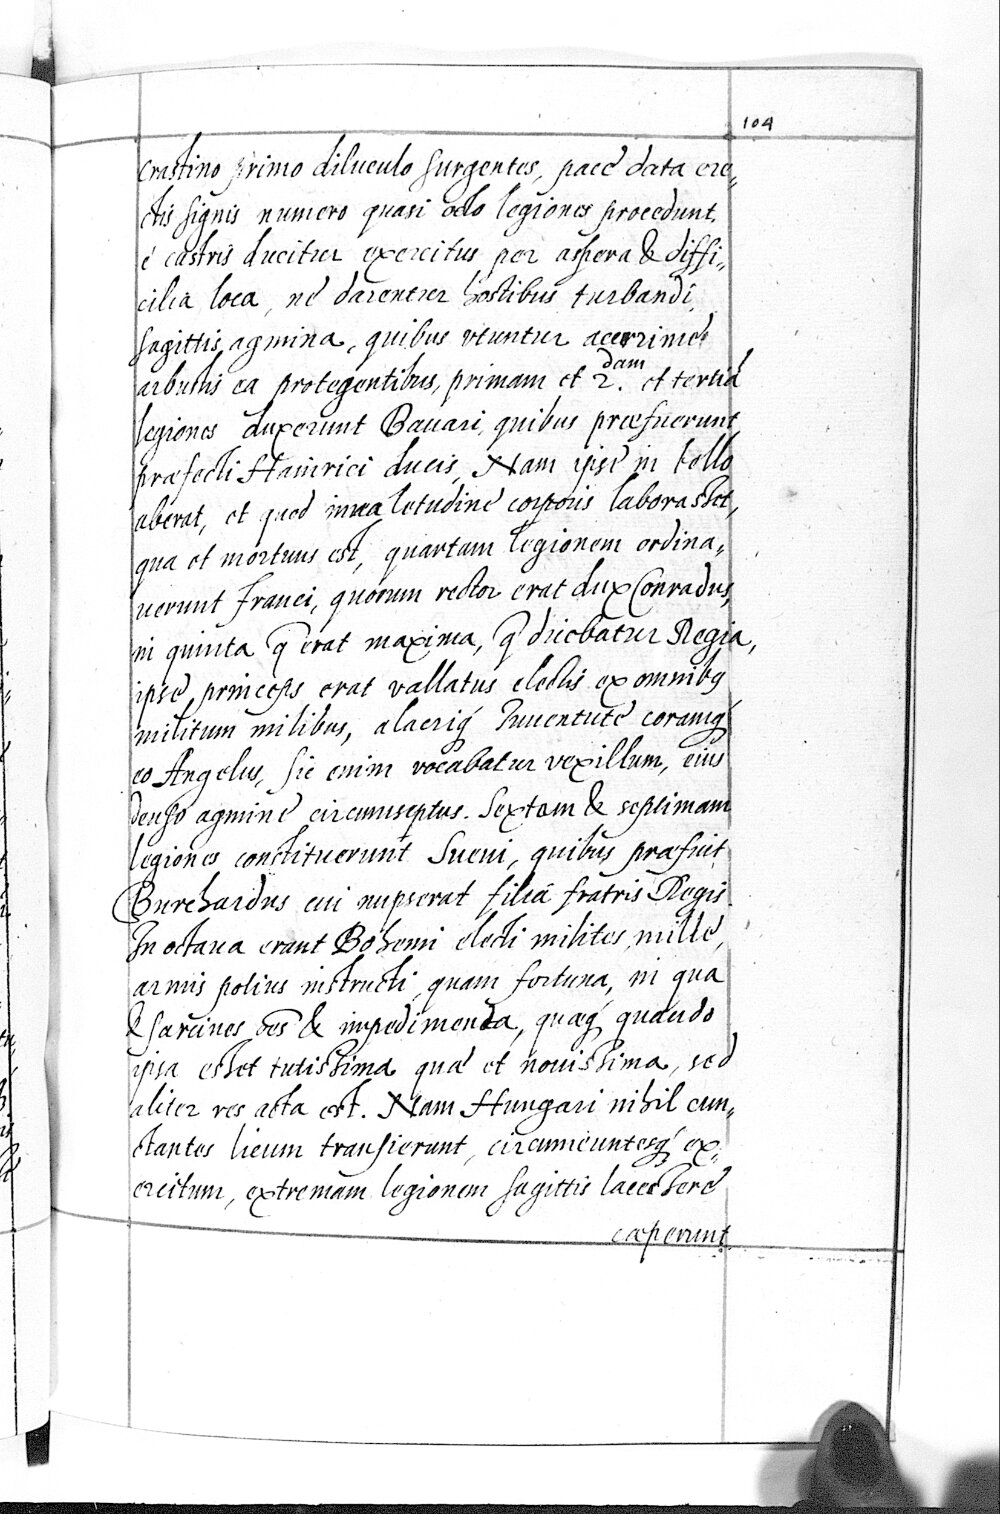 104
crastino primo diluculo surgentes, pace data ere„
ctis signis numero quasi octo legiones procedunt,
é castris ducitur exercitus per aspera & diffi„
cilia loca, ne darentur hostibus turbandi
sagittis agmina, quibus vtuntur acerrime
arbustis ea protegentibus, primam et 2.dam et tertiā
legiones duxerunt Bauari, quibus præfuerunt
præfecti Hainrici ducis, Nam ipse in bello
aberat, et quod inualetudine corporis laborasset,
qua et mortuus est, quartam legionem ordina„
uerunt franci, quorum rector erat dux Conradus,
in quinta q̄ erat maxima, q̄ ducebatur Regia,
ipse princeps erat vallatus electis ex omnibq
militum milibus, alacriq́ Iuuentute coramq́
eo Angelus, sic enim vocabatur vexillum, eius
denso agmine circumseptus. Sextam & septimam
legiones constituerunt Sueui, quibus præfuit
Burchardus cui nupserat filia fratris Regis.
In octaua erant Bohemi electi milites mille,
armis potius instructi quam fortuna, in qua
& sarcines oēs & impedimenta, quæq́ quando
ipsa esset tutissima quæ et nouissima, sed
aliter res acta est. Nam Hungari nihil cun„
ctantes licum transierunt, circumeuntesq́ ex„
ercitum, extremam legionem sagittis lacessere
cæperunt